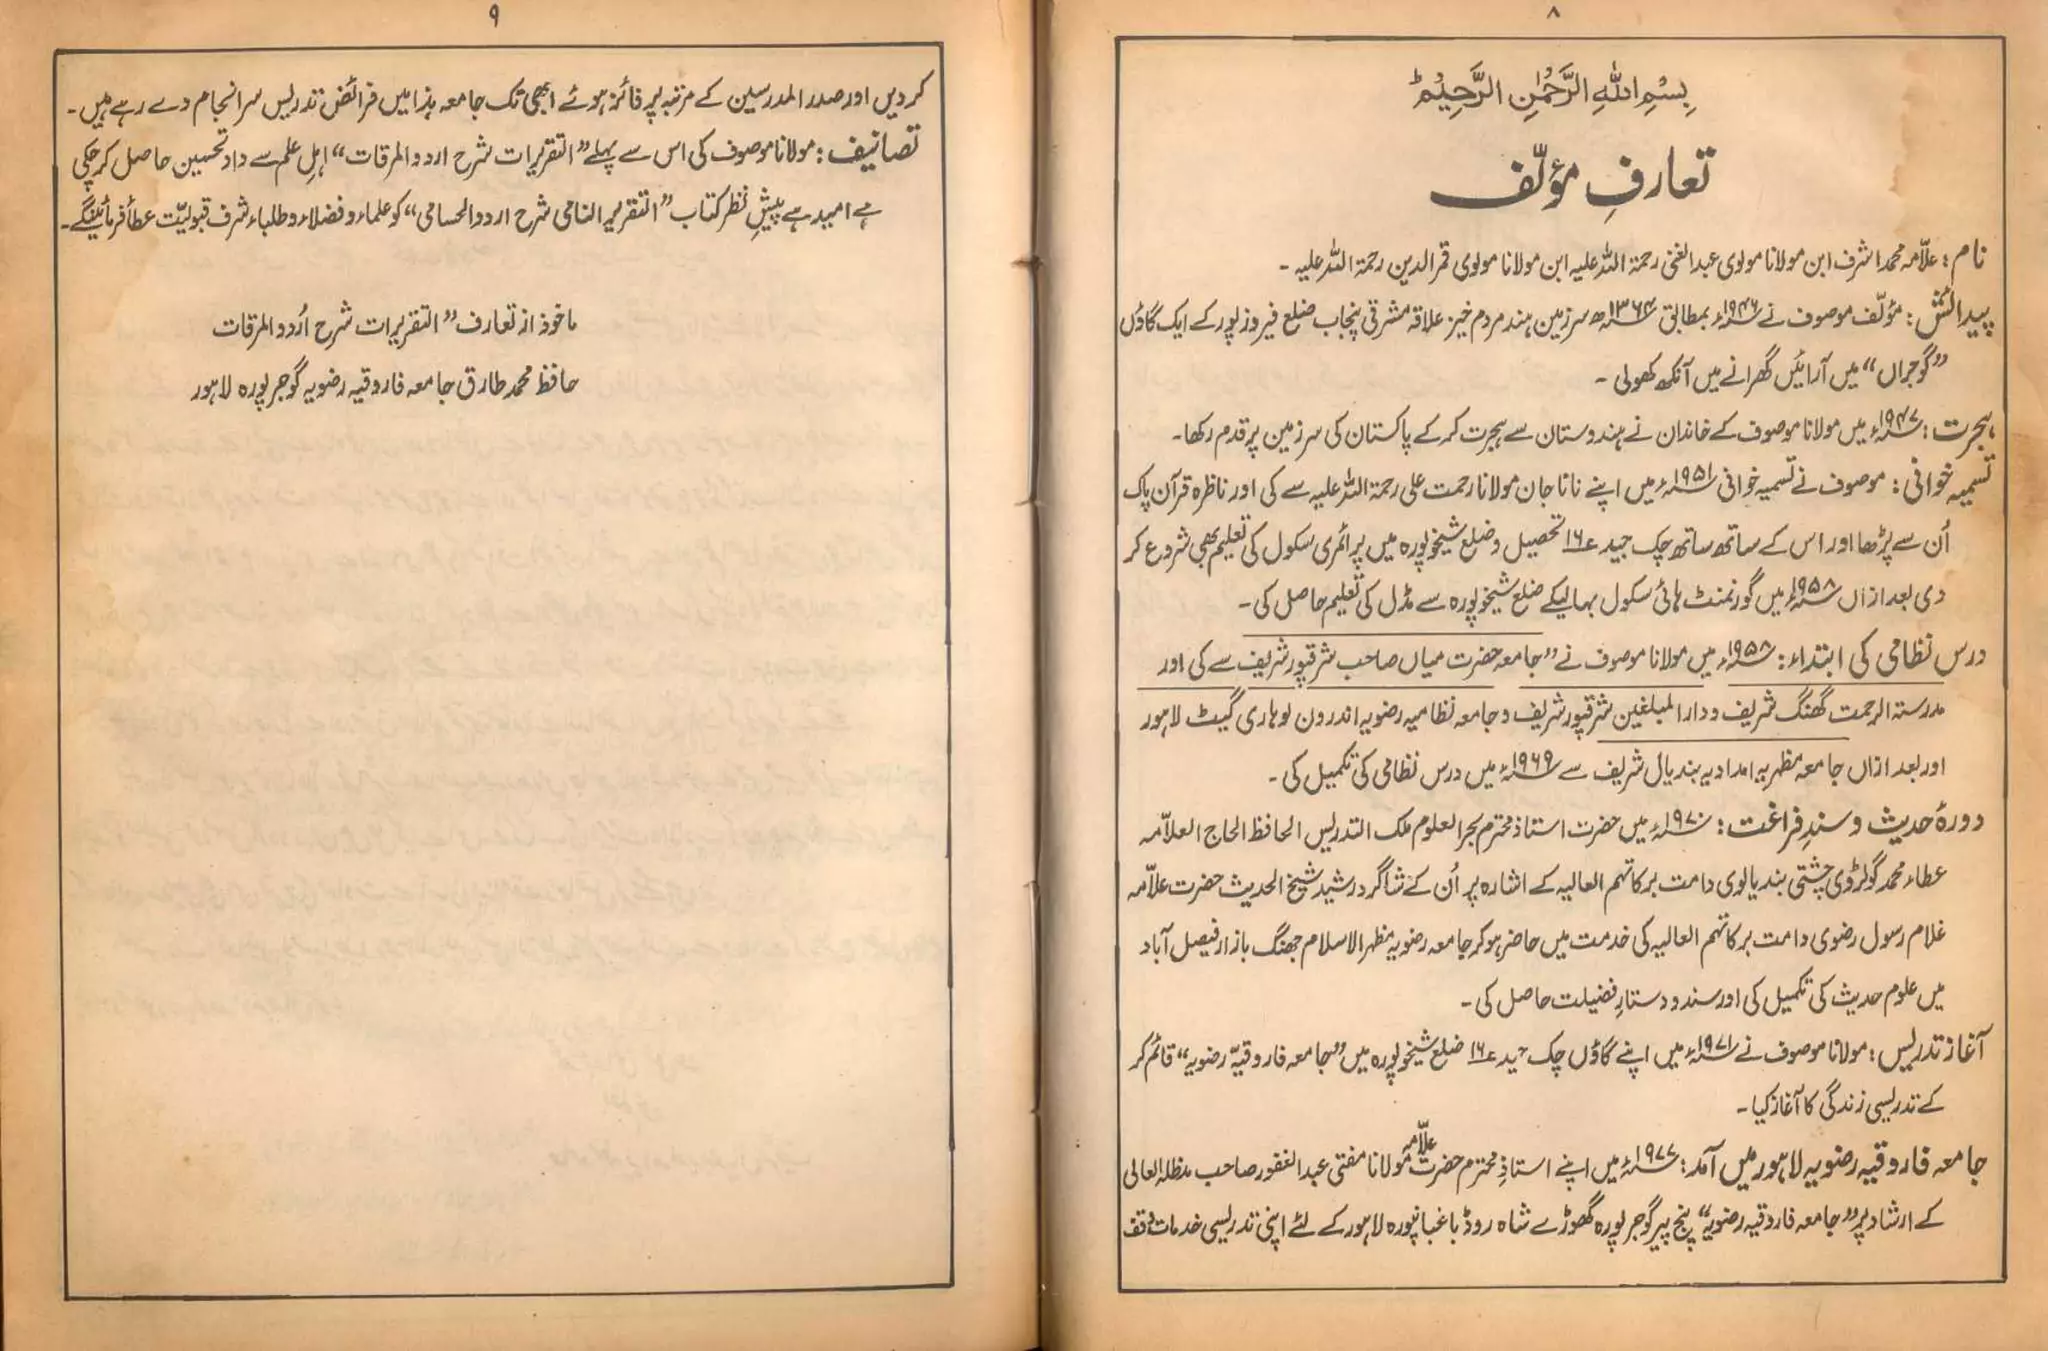 ۸
بِسْمِ اللهِ الرَّحْمٰنِ الرَّحِیْمِؕ
تعارفِ مؤلّف
نام: علّامہ محمد اشرف ابن مولانا مولوی عبدالغنی رحمۃ اللہ علیہ ابن مولانا مولوی قمرالدین رحمۃ اللہ علیہ۔
پیدائش: مؤلّف موصوف نے ۱۹۴۶ء بمطابق ۱۳۶۴ھ سرزمین ہند مردم خیز علاقہ مشرقی پنجاب ضلع فیروزپور کے ایک گاؤں
”گوجراں“ میں آرائیں گھرانے میں آنکھ کھولی۔
ہجرت: ۱۹۴۷ء میں مولانا موصوف کے خاندان نے ہندوستان سے ہجرت کرکے پاکستان کی سرزمین پر قدم رکھا۔
تسمیہ خوانی: موصوف نے تسمیہ خوانی ۱۹۵۱ء میں اپنے نانا جان مولانا رحمت علی رحمۃ اللہ علیہ سے کی اور ناظرہ قرآن پاک
اُن سے پڑھا اور اس کے ساتھ ساتھ چک جید ۱۶ تحصیل و ضلع شیخوپورہ میں پرائمری سکول کی تعلیم بھی شروع کر
دی بعد ازاں ۱۹۵۸ء میں گورنمنٹ ہائی سکول بہالیکے ضلع شیخوپورہ سے مڈل کی تعلیم حاصل کی۔
درس نظامی کی ابتداء: ۱۹۵۸ء میں مولانا موصوف نے ”جامعہ حضرت میاں صاحب شرقپور شریف سے کی اور
مدرستہ الرحمت گھنگ شریف و دارالمبلغین شرقپور شریف و جامعہ نظامیہ رضویہ اندرون لوہاری گیٹ لاہور
اور بعد ازاں جامعہ مظہریہ امدادیہ بندیال شریف سے ۱۹۶۹ء میں درس نظامی کی تکمیل کی۔
دورۂ حدیث و سندِ فراغت: ۱۹۷۰ء میں حضرت استاذ محترم بحرالعلوم ملک التدریس الحافظ الحاج العلاّمہ
عطاء محمد گولڑوی چشتی بندیالوی دامت برکاتہم العالیہ کے اشارہ پر اُن کے شاگرد رشید شیخ الحدیث حضرت علاّمہ
غلام رسول رضوی دامت برکاتہم العالیہ کی خدمت میں حاضر ہوکر جامعہ رضویہ مظہرالاسلام جھنگ بازار فیصل آباد
میں علوم حدیث کی تکمیل کی اور سند و دستارِ فضیلت حاصل کی۔
آغاز تدریس: مولانا موصوف نے ۱۹۷۱ء میں اپنے گاؤں چک جید ۱۶ ضلع شیخوپورہ میں ”جامعہ فاروقیّہ رضویہ“ قائم کر
کے تدریسی زندگی کا آغاز کیا۔
جامعہ فاروقیہ رضویہ لاہور میں آمد: ۱۹۷۷ء میں اپنے استاذِ محترم حضرت علاّمہ مولانا مفتی عبدالغفور صاحب مدظلہ العالی
کے ارشاد پر ”جامعہ فاروقیہ رضویہ“ پنج پیر گوجرپورہ گھوڑے شاہ روڈ باغبانپورہ لاہور کے لئے اپنی تدریسی خدمات وقف
۹
کردیں اور صدر المدرسین کے مرتبہ پر فائز ہوئے ابھی تک جامعہ ہذا میں فرائض تدریس سرانجام دے رہے ہیں۔
تصانیف: مولانا موصوف کی اس سے پہلے ”التقریرات شرح اردو المرقات“ اہلِ علم سے داد تحسین حاصل کرچکی
ہے امید ہے پیشِ نظر کتاب ”التقریر النامی شرح اردو الحسامی“ کو علماء و فضلاء و طلباء شرف قبولیّت عطأ فرمائینگے۔
ماخوذ از تعارف ”التقریرات شرح اُردو المرقات
حافظ محمد طارق جامعہ فاروقیہ رضویہ گوجرپورہ لاہور